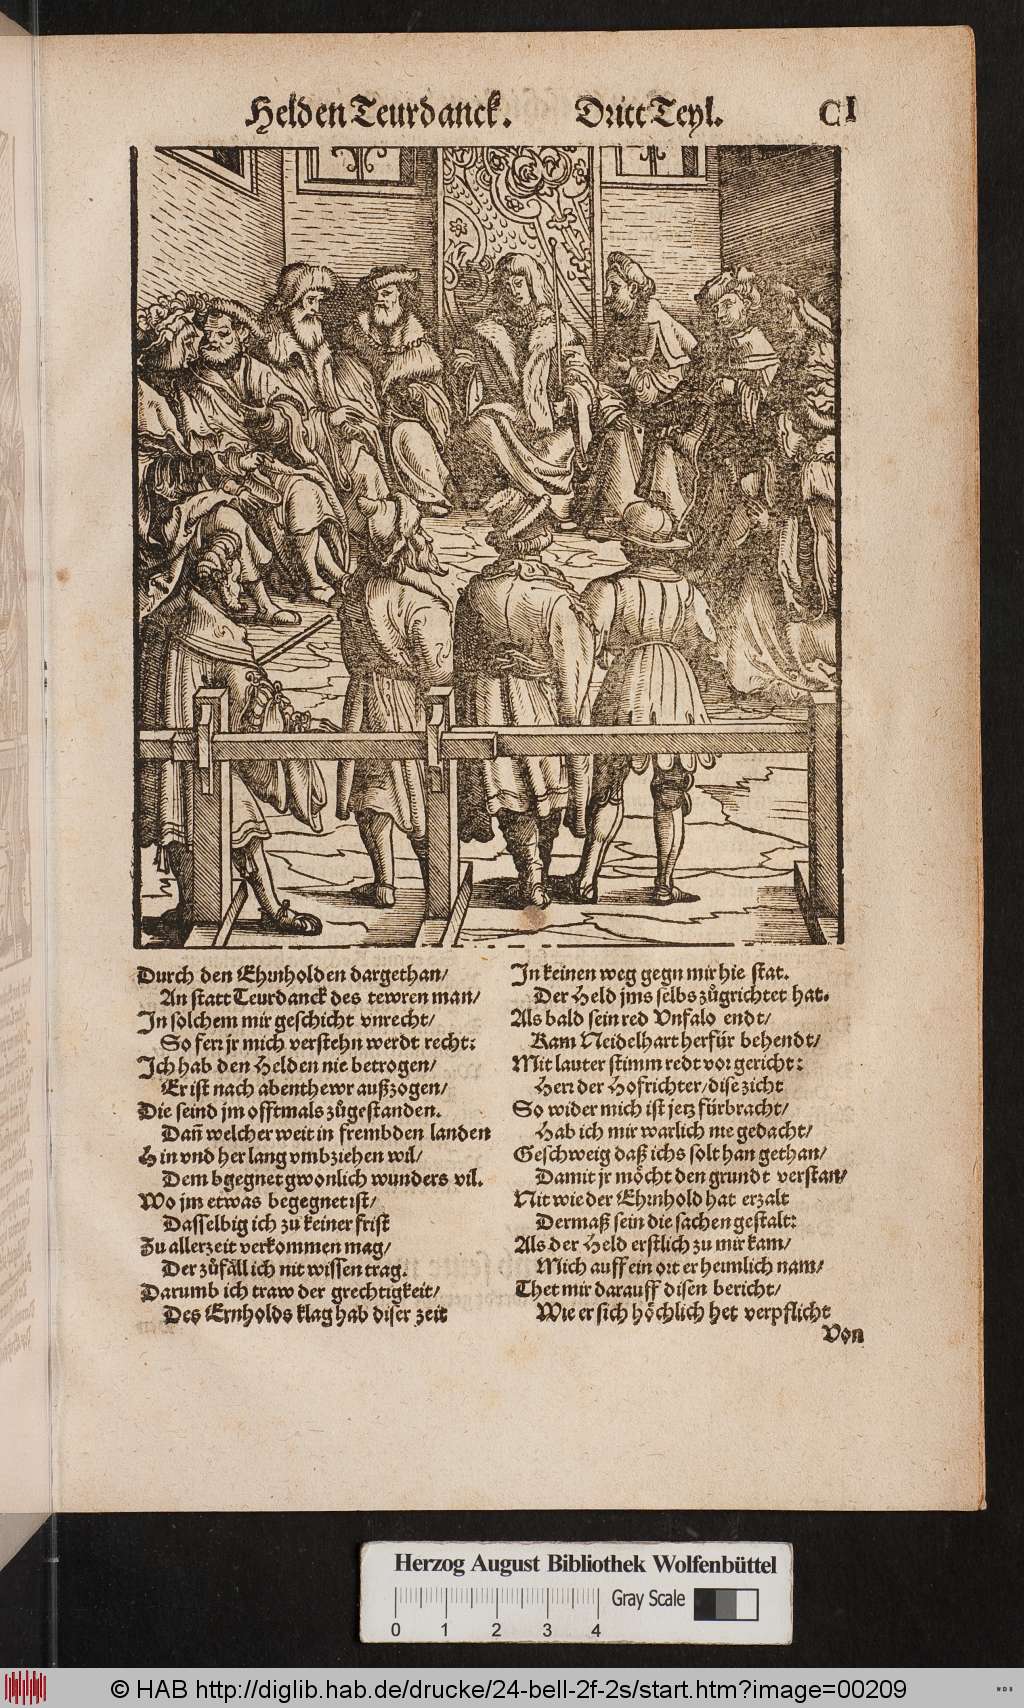 Helden Teurdanck. Dritt Teyl. CI
Durch den Ehrnholden dargethan/
An statt Teurdanck des tewren man/
In solchem mir geschicht vnrecht/
So ferr jr mich verstehn werdt recht:
Ich hab den Helden nie betrogen/
Er ist nach abenthewr außzogen/
Die seind jm offtmals zůgestanden.
Dañ welcher weit in frembden landen
Hin vnd her lang vmbziehen wil/
Dem bgegnet gwonlich wunders vil.
Wo jm etwas begegnet ist/
Dasselbig ich zu keiner frist
Zu allerzeit verkommen mag/
Der zůfäll ich nit wissen trag.
Darumb ich traw der grechtigkeit/
Des Ernholds klag hab diser zeit
In keinen weg gegn mir hie stat.
Der Held jms selbs zůgrichtet hat.
Als bald sein red Vnfalo endt/
Kam Neidelhart herfür behendt/
Mit lauter stimm redt vor gericht:
Herr der Hofrichter/dise zicht
So wider mich ist jetz fürbracht/
Hab ich mir warlich nie gedacht/
Geschweig daß ichs solt han gethan/
Damit jr möcht den grundt verstan/
Nit wie der Ehrnhold hat erzalt
Dermaß sein die sachen gestalt:
Als der Held erstlich zu mir kam/
Mich auff ein ort er heimlich nam/
Thet mir darauff disen bericht/
Wie er sich höchlich het verpflicht
Von
Herzog August Bibliothek Wolfenbüttel
Gray Scale
0 1 2 3 4
© HAB http://diglib.hab.de/drucke/24-bell-2f-2s/start.htm?image=00209